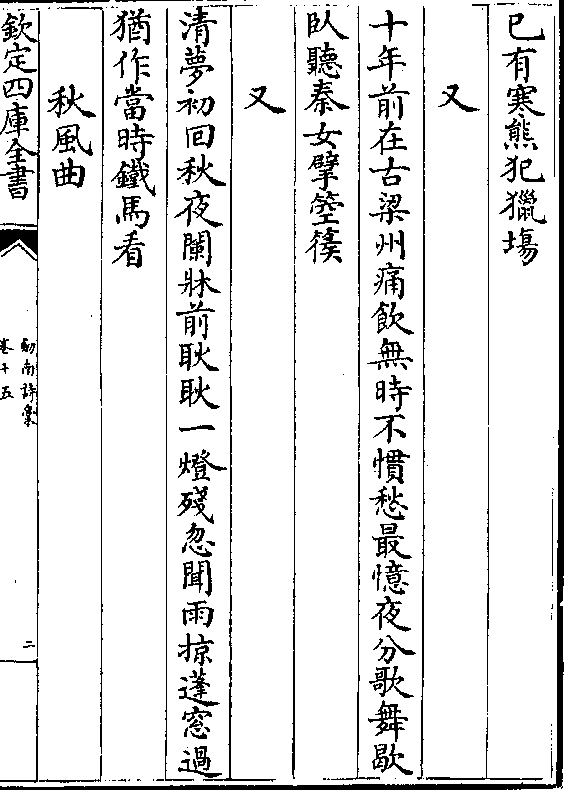 已有寒熊犯獵塲
又
十年前在古梁州痛飲無時不慣愁最憶夜分歌舞歇
臥聽秦女擘箜篌
又
清夢初回秋夜闌牀前耿耿一燈殘忽聞雨掠蓬窓過
猶作當時鐵馬看
秋風曲
欽定四庫全書
劍南詩槀
卷十五
二